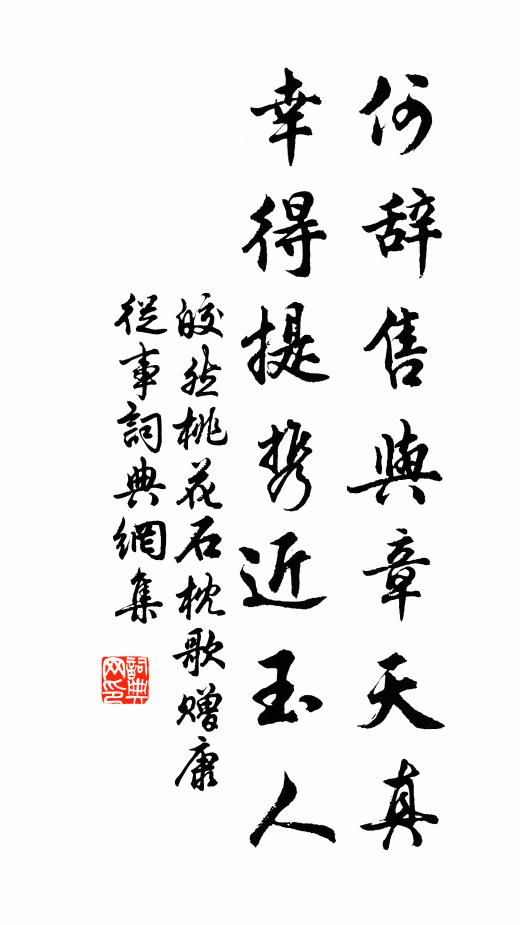 何辞售與章天真
幸得提携近玉人
皎然桃花石枕歌赠康
從事詞典網集
詞典网印